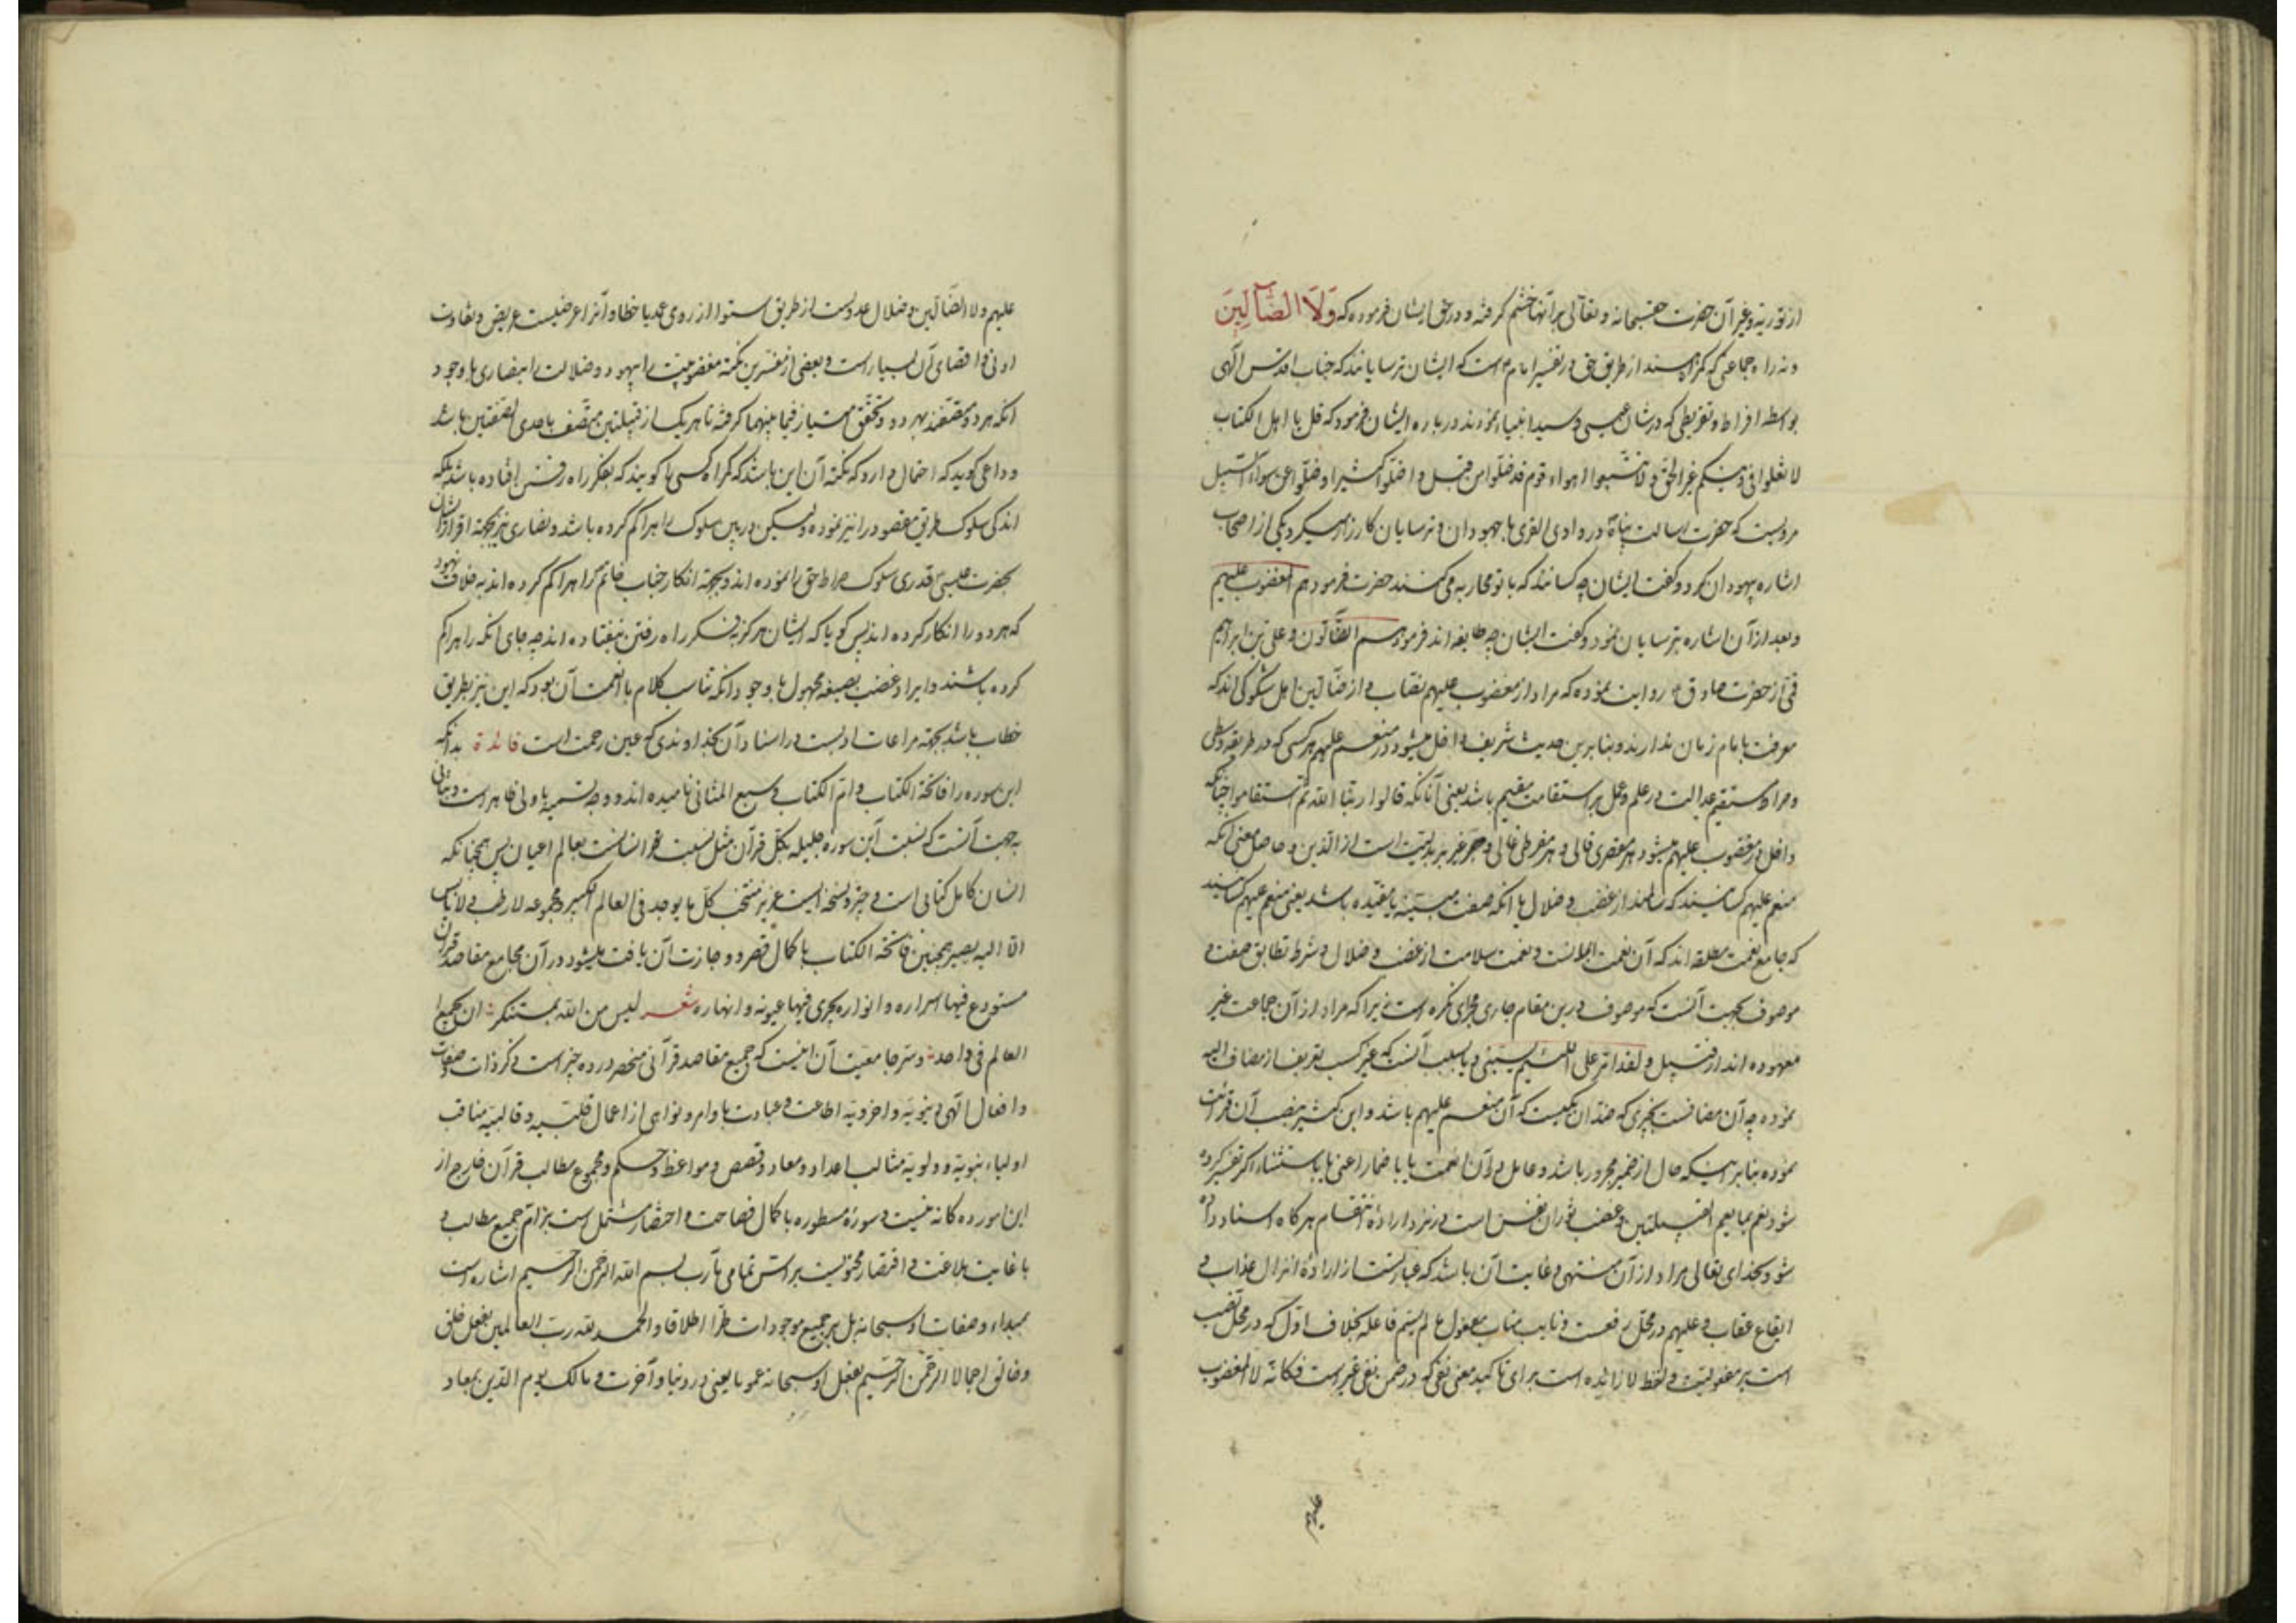 از توریة و غیر آن حضرت حق سبحانه و تعالی بر آنها خشم گرفته و در حق ایشان فرموده که وَلَا الضَّآلِّینَ
و نه راه جماعتی که گمراهند از طریق حق در تفسیر امام است که ایشان ترسایانند که جناب اقدس الهی
بواسطه افراط و تفریطی که در شان عیسی و سید انبیاء نمودند در باره ایشان فرمود که قل یا اهل الکتاب
لا تغلوا فی دینکم غیر الحق و لا تتبعوا اهواء قوم قد ضلوا من قبل و اضلوا کثیرا و ضلوا عن سواء السبیل
مرویست که حضرت رسالت پناه در وادی القری با جهودان و ترسایان کارزار میکرد یکی از اصحاب
اشاره بیهودان کرد و گفت ایشان چه کسانند که با تو محاربه می کنند حضرت فرمود هم المغضوب علیهم
و بعد از آن اشاره بترسایان نمود و گفت ایشان چه طایفه اند فرمود هم الضالون و علی بن ابراهیم
قمی از حضرت صادق روایت نموده که مراد از مغضوب علیهم نصاب و از ضالین اهل شکوکی اند که
معرفت بامام زمان ندارند و بنا برین حدیث شریف داخل میشود در منعم علیهم هر کسی که در طریقه وسطی
و صراط مستقیم عدالت در علم و عمل بر استقامت مقیم باشد یعنی آنانکه قالوا ربنا الله ثم استقاموا چنانکه
داخل در مغضوب علیهم میشود هر مقصری قالی و هر مفرطی غالی و جر غیر بر بدلیت است از الذین و حاصل معنی آنکه
منعم علیهم کسانیند که سالمند از غضب و ضلال یا آنکه صفت مبینه یا مقیده باشد یعنی منعم علیهم کسانیند
که جامع نعمت مطلقه اند که آن نعمت ایمانست و نعمت سلامت از غضب و ضلال و شرط تطابق صفت و
موصوف بجهت آنست که موصوف درین مقام جاری مجرای نکره است زیرا که مراد از آن جماعت غیر
معهوده اند از قبیل و لقد امر علی اللئیم یسبنی و یا بسبب آنست که غیر کسب تعریف از مضاف الیه
نموده چه آن مضافست بچیزی که ضد آن یکیست که آن منعم علیهم باشد و ابن کثیر بنصب آن قرائت
نموده بنا بر اینکه حال از ضمیر مجرور باشد و عامل در آن انعمت یا باضمار اعنی یا باستثناء اگر تفسیر کرده
شود نعم بما یعم القبیلتین و غضب ثوران نفس است در نزد اراده انتقام هر گاه اسناد داده
شود بخدای تعالی مراد از آن منتهی و غایت آن باشد که عبارتست از اراده انزال عذاب و
ایقاع عقاب و علیهم در محل رفعست و نایب مناب مفعول ما لم یسم فاعله بخلاف اول که در محل نصب
است بر مفعولیت و لفظ لا زائده است برای تاکید معنی نفی که در ضمن نفی غیر است فکانه لا المغضوب
علیهم
علیهم و لا الضالین و ضلال عدولست از طریق استوا از روی عمد یا خطا و آنرا عرضیست عریض و تفاوت
ادنی و اقصای آن بسیار است و بعضی از مفسرین نکته مغضوبیت را بیهود و ضلالت را بنصاری با وجود
آنکه هر دو متصفند بهر دو و تحقق امتیاز فیما بینهما گرفته تا هر یک از قبیلتین متصف باحدی الصفتین باشد
و داعی گوید که احتمال دارد که نکته آن این باشد که گمراه کسی را گویند که بفکر راه رفتن افتاده باشد بلکه
اندکی سلوک طریق مقصود را نیز نموده و لیکن در بین سلوک راه را گم کرده باشد و نصاری نیز بجهة اقرار ایشان
بحضرت عیسی قدری سلوک صراط حق را نموده اند و بجهة انکار جناب خاتم راه را گم کرده اند به خلاف یهود
که هر دو را انکار کرده اند پس گویا که ایشان هرگز بفکر راه رفتن نیفتاده اند چه جای آنکه راه را گم
کرده باشند و ایراد غضب بصیغه مجهول با وجود آنکه تناسب کلام با انعمت آن بود که این نیز بطریق
خطاب باشد بجهة مراعات ادبست در اسناد آن بخداوندی که عین رحمت است فائدة بدانکه
این سوره را فاتحة الکتاب و ام الکتاب و سبع المثانی نامیده اند و وجه تسمیه باولی ظاهر است و ثانی
بجهت آنست که نسبت این سوره جلیله بکل قرآن مثل نسبت انسانست بعالم اعیان پس همچنانکه
انسان کامل کتابی است وجیز و نسخه ایست عزیز منتخب کل ما یوجد فی العالم الکبیر و مجموعه لا رطب و لا یابس
الا الیه یصیر همچنین فاتحة الکتاب با کمال قصر و وجازت آن یافت میشود در آن مجامع مقاصد قرآن
مستودع فیها اسراره و انواره یجری فیها عیونه و انهاره شعر لیس من الله بمستنکر ان یجمع
العالم فی واحد و سر جامعیت آن اینست که جمیع مقاصد قرآنی منحصر در ده چیز است ذکر ذات و صفات
و افعال الهی دنیویة و اخرویة اطاعت و عبادت با وامر و نواهی از اعمال قلبیه و قالبیه مناقب
اولیاء نبویة و ولویة مثالب اعداد و معاد و قصص و مواعظ و حکم و مجموع مطالب قرآن خارج از
این امور ده گانه نیست و سورۀ مسطوره با کمال فصاحت و اختصار مشتمل است بر اتم جمیع مطالب و
با غایت بلاغت و اقتصار محتویست بر تمامی مآرب بسم الله الرحمن الرحیم اشاره است
بمبداء و صفات او سبحانه بل بر جمیع موجودات طرا اطلاقا و الحمد لله رب العالمین بفعل خلق
وخالق اجمالا الرحمن الرحیم بفعل او سبحانه عموما یعنی در دنیا و آخرت و مالک یوم الدین بمعاد